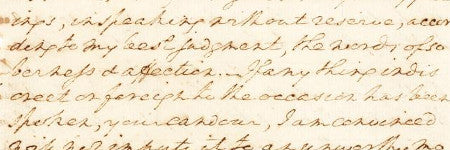 ings, in speaking without reserve, accor
ding to my best judgment, the words of so
berness & affection. If any thing indis
creet or foreign to the occasion has been
spoken, your candour, I am convinced
will not impute it to an unworthy mo